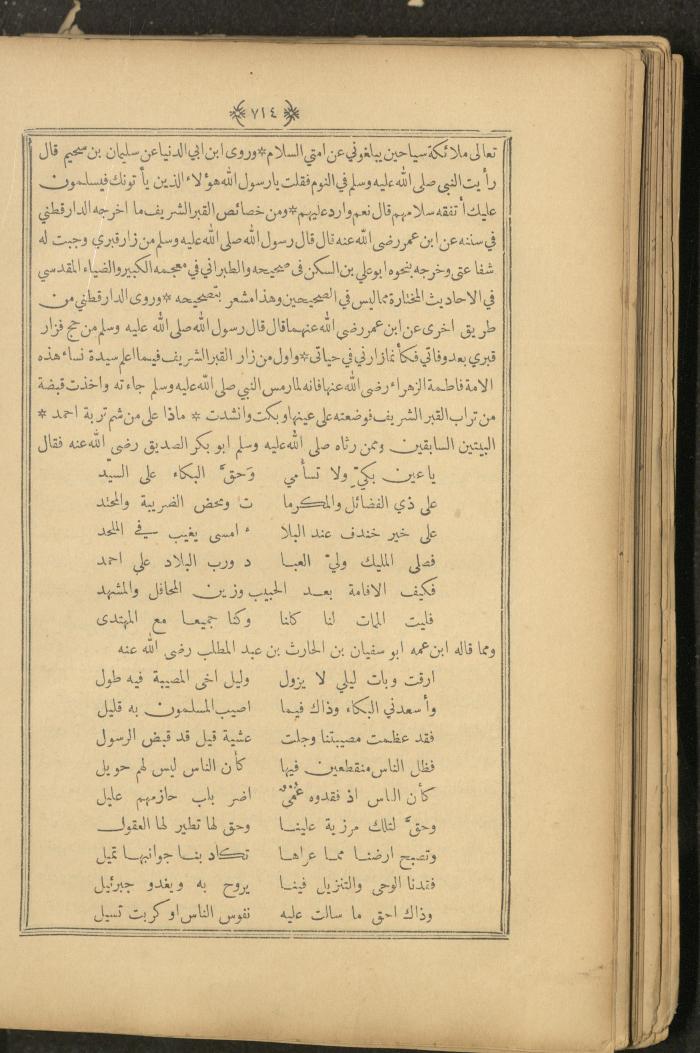 ﴿٧١٤﴾
تعالى ملائكة سياحين يبلغوني عن امتي السلام * وروى ابن ابي الدنيا عن سليمان بن سحيم قال
رأيت النبي صلى الله عليه وسلم في النوم فقلت يا رسول الله هؤلاء الذين يأتونك فيسلمون
عليك أتفقه سلامهم قال نعم وارد عليهم * ومن خصائص القبر الشريف ما اخرجه الدارقطني
في سننه عن ابن عمر رضي الله عنه قال قال رسول الله صلى الله عليه وسلم من زار قبري وجبت له
شفاعتى وخرجه بنحوه ابو علي بن السكن فى صحيحه والطبراني في معجمه الكبير والضياء المقدسي
في الاحاديث المختارة مما ليس في الصحيحين وهذا مشعر بتصحيحه * وروى الدارقطني من
طريق اخرى عن ابن عمر رضي الله عنهما قال قال رسول الله صلى الله عليه وسلم من حج فزار
قبري بعد وفاتي فكأنما زارني في حياتى * واول من زار القبر الشريف فيما اعلم سيدة نساء هذه
الامة فاطمة الزهراء رضي الله عنها فانه لما رمس النبي صلى الله عليه وسلم جاءته واخذت قبضة
من تراب القبر الشريف فوضعته على عينها وبكت وانشدت * ماذا على من شم تربة احمد *
البيتين السابقين وممن رثاه صلى الله عليه وسلم ابو بكر الصديق رضى الله عنه فقال
يا عين بكيّ ولا تسأمي وَحقَّ البكاء على السيّد
على ذي الفضائل والمكرما ت ومحض الضريبة والمحتد
على خير خندف عند البلا ء امسى يغيب في الملحد
فصلى المليك وليّ العبا د ورب البلاد على احمد
فكيف الاقامة بعد الحبيب وزين المحافل والمشهد
فليت الممات لنا كلنا وكنا جميعا مع المهتدى
ومما قاله ابن عمه ابو سفيان بن الحارث بن عبد المطلب رضى الله عنه
ارقت وبات ليلي لا يزول وليل اخى المصيبة فيه طول
وأسعدني البكاء وذاك فيما اصيب المسلمون به قليل
فقد عظمت مصيبتنا وجلت عشية قيل قد قبض الرسول
فظل الناس منقطعين فيها كأن الناس ليس لهم حويل
كأن الناس اذ فقدوه عُمْىٌ اضر باب حازمهم عليل
وحقَّ لتلك مرزية علينا وحق لها تطير لها العقول
وتصبح ارضنا مما عراها تكاد بنا جوانبها تميل
فقدنا الوحى والتنزيل فينا يروح به ويغدو جبرئيل
وذاك احق ما سالت عليه نفوس الناس او كربت تسيل